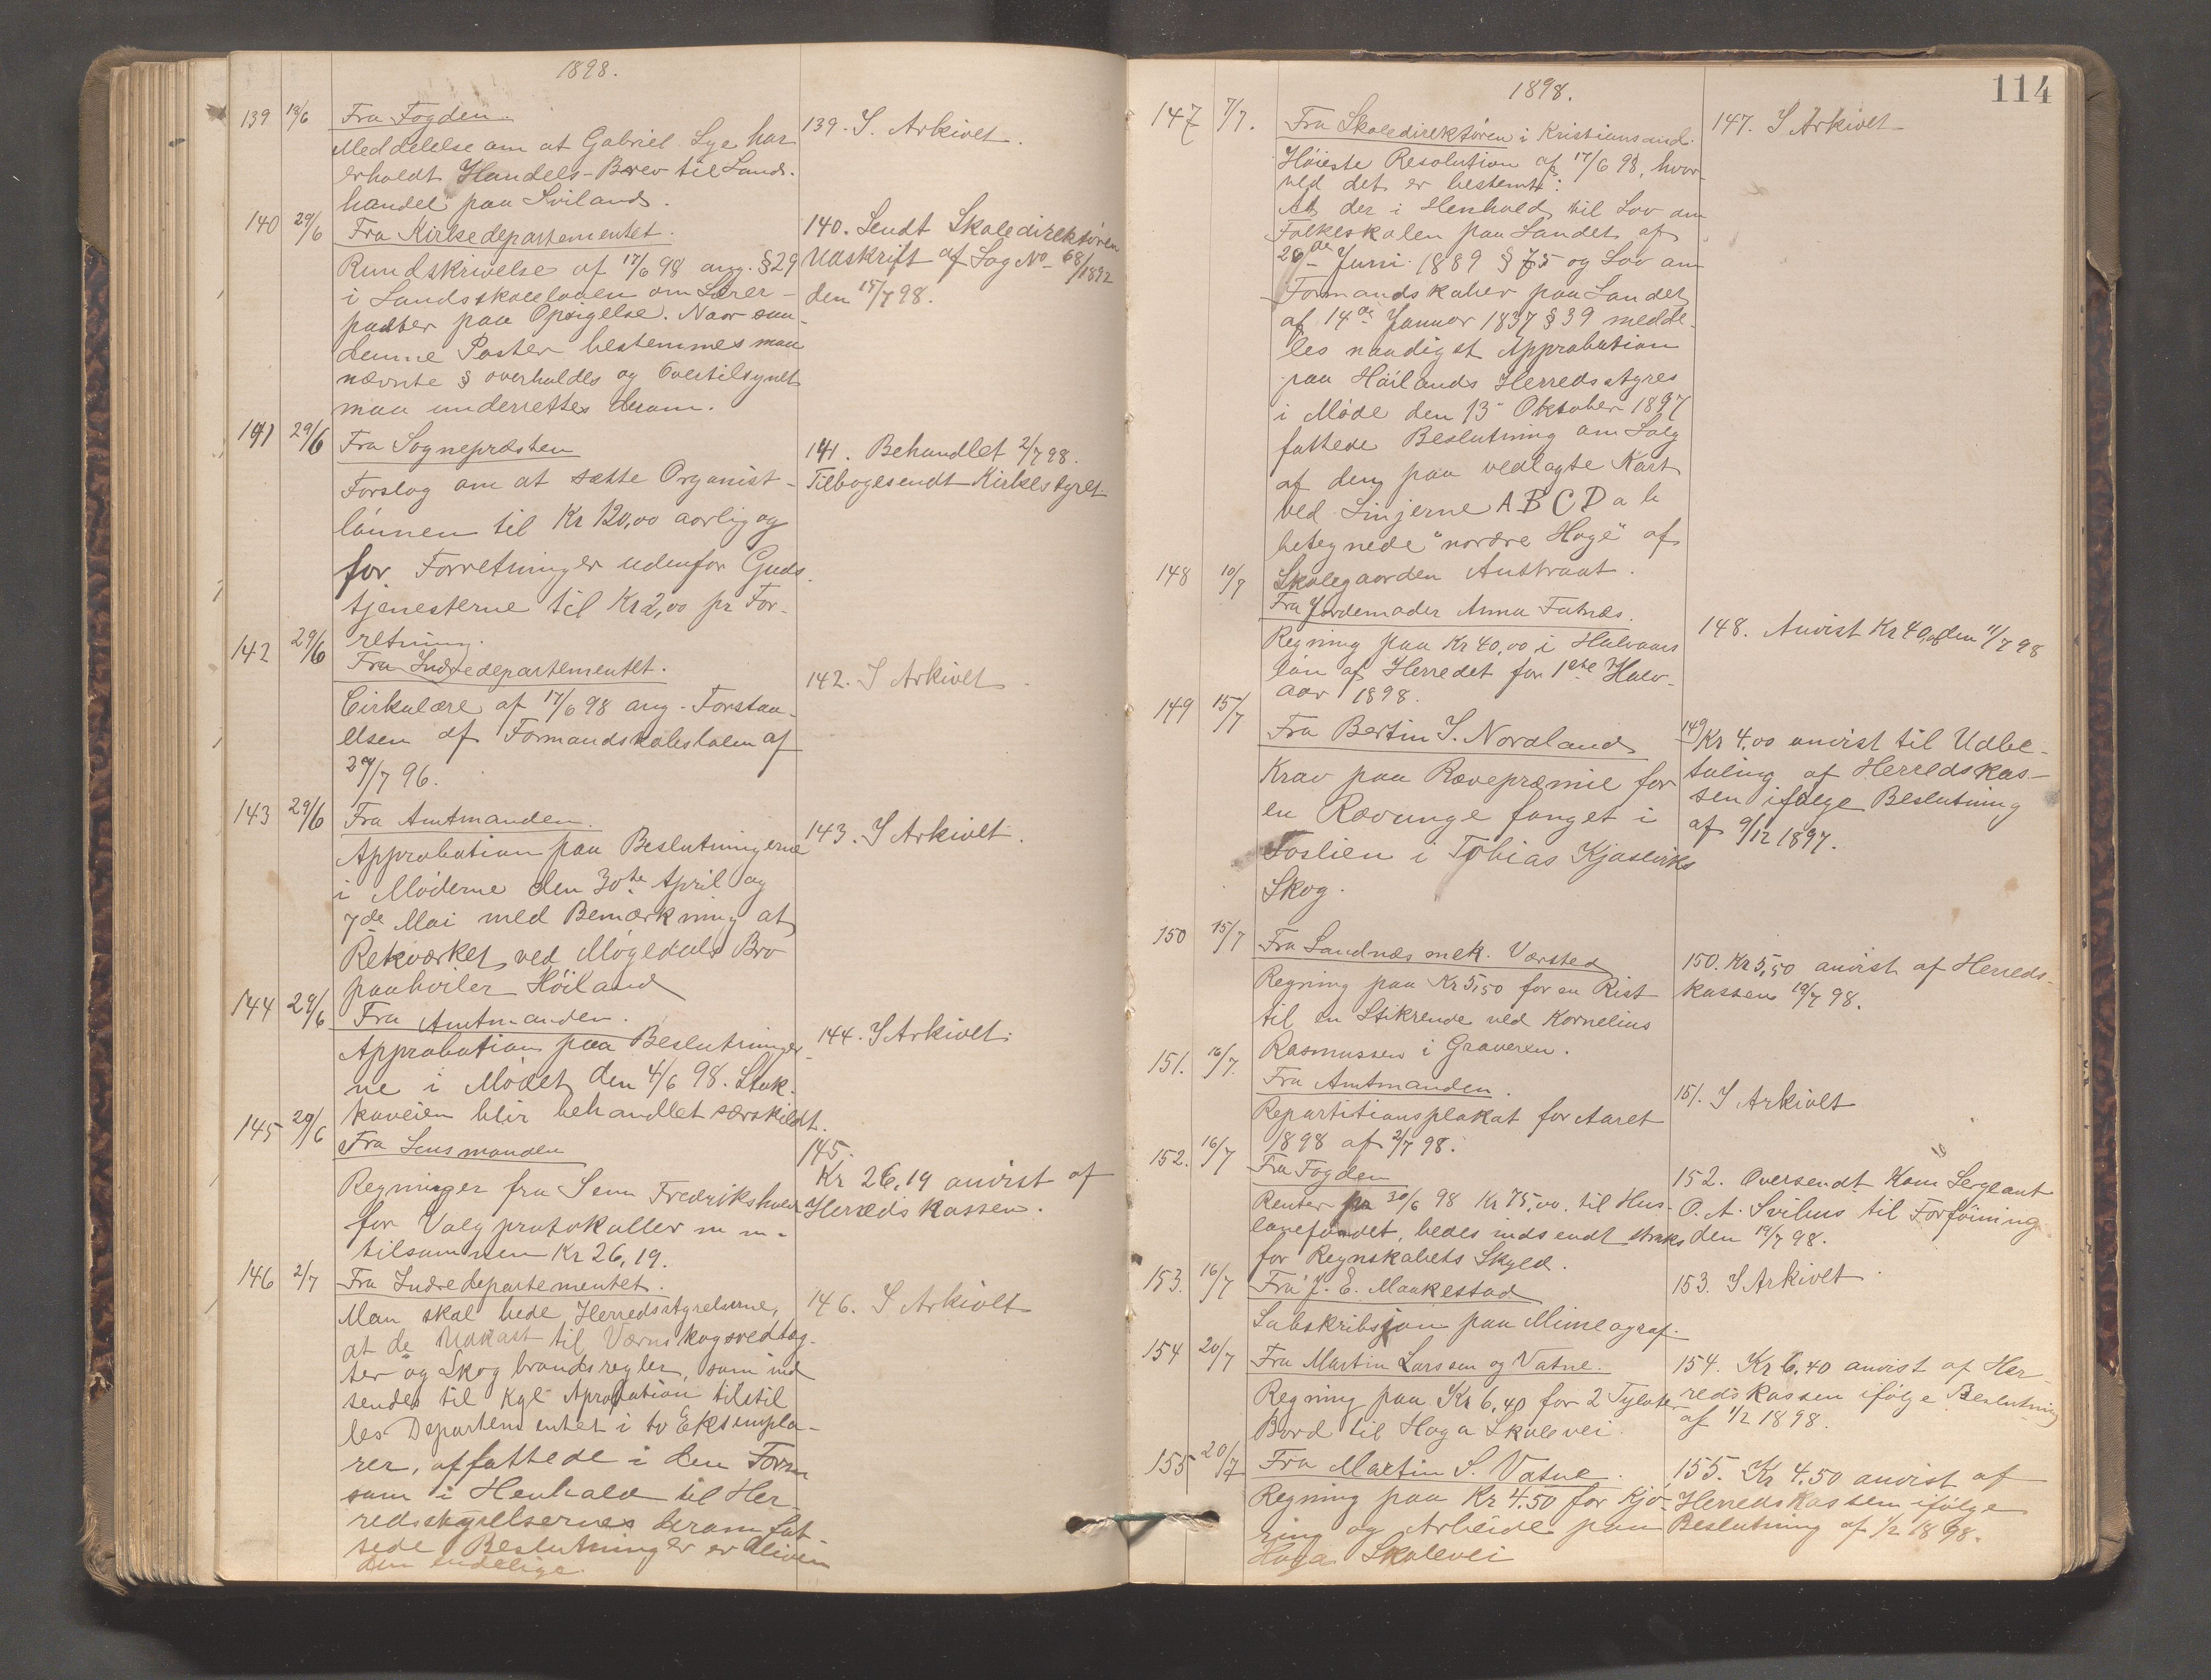 1898.
139 13/6 Fra Fogden.
Meddelelse om at Gabriel Lye har
erholdt Handels-Brev til Lands-
handel paa Sviland.
139. I Arkivet.
140 29/6 Fra Kirkedepartementet.
Rundskrivelse af 17/6 98 ang. §29
i Landsskoleloven om Lærer-
poster paa Opsigelse. Naar saa-
danne Poster bestemmes maa
nævnte § overholdes og Overtilsynet
maa underrettes derom.
140. Sendt Skoledirektøren
Udskrift af Sag No 68/1892
den 15/7 98.
141 29/6 Fra Sognepræsten
Forslag om at sætte Organist-
lønnen til Kr 120,00 aarlig og
for Forretninger udenfor Guds-
tjenesterne til Kr 2,00 pr For-
retning.
141. Behandlet 2/7 98.
Tilbagesendt Kirkestyret
142 29/6 Fra Indredepartementet.
Cirkulære af 17/6 98 ang. Forstaa-
elsen af Formandskabsloven af
27/7 96.
142. I Arkivet
143 29/6 Fra Amtmanden.
Approbation paa Beslutningerne
i Møderne den 30te April og
7de Mai med Bemærkning at
Rekværket ved Møgedals Bro
paahviler Høiland
143. I Arkivet.
144 29/6 Fra Amtmanden.
Approbation paa Beslutninger-
ne i Mødet den 4/6 98.
kaveien blir behandlet særskildt.
144. I Arkivet.
145 29/6 Fra Lensmanden
Regninger fra Senn Fredrikshald
for Valgprotokoller m m.
tilsammen Kr 26,19.
145.
Kr 26,19 anvist af
Herredskassen.
146 2/7 Fra Indredepartementet.
Man skal bede Herredsstyrelserne,
at de Udkast til Værnskogsvedtæg-
ter og Skogbrandsregler, som ind
sendes til Kgl Aprobation tilstil
les Departementet i to Eksempla-
rer, affattede i den Form
som i Henhold til Her-
redsstyrelsernes derom fat-
tede Beslutninger er bliven
den endelige.
146. I Arkivet
114
1898.
147 7/7. Fra Skoledirektøren i Kristiansand.
Høieste Resolution af 17/6 98, hvor-
ved det er bestemt:
At der i Henhold til Lov om
Folkeskolen paa Landet af
26de Juni 1889 § 75 og Lov om
Formandskaber paa Landet
af 14de Januar 1837 § 39 medde-
les naadigst Approbation
paa Høilands Herredsstyres
i Møde den 13 Oktober 1897
fattede Beslutning om Salg
af den paa vedlagte Kart
ved Linjerne A B C D a b
betegnede "nordre Hage" af
Skolegaarden Austraat.
147. I Arkivet
148 10/7 Fra Jordemoder Anna Fatnæs.
Regning paa Kr 40,00 i Halvaars
løn af Herredet for 1ste Halv-
aar 1898.
148. Anvist Kr 40,00 den 11/7 98
149 15/7 Fra Bertin S. Nordland
Krav paa Rævepræmie for
en Rævunge fanget i
Foslien i Tobias Kjosviks
Skog.
149 Kr 4.00 anvist til Udbe-
taling af Herredskas-
sen ifølge Beslutning
af 9/12 1897.
150 15/7 Fra Sandnæs mek. Værsted
Regning paa Kr 5,50 for en Rist
til en Stikrende ved Kornelius
Rasmussen i Graveren.
150. Kr 5,50 anvist af Herreds-
kassen 19/7 98.
151. 16/7. Fra Amtmanden.
Repartitionsplakat for Aaret
1898 af 2/7 98.
151. I Arkivet
152. 16/7 Fra Fogden
Renter pr 30/6 98 Kr 75,00. til Hus-
lånefondet, bedes indsendt straks
for Regnskabets Skyld.
152. Oversendt Kom Sergeant
O. A. Svihus til Forføining
den 19/7 98.
153. 16/7 Fra J. E. Maakestad
Subskribsjon paa Mimeograf.
153. I Arkivet.
154 20/7 Fra Martin Larssen og Vatne.
Regning paa Kr 6,40 for 2 Tylvter
Bord til Hoga Skolevei.
154. Kr 6,40 anvist af Her-
redskassen ifølge Beslutning
af 1/2 1898.
155 20/7 Fra Martin S. Vatne.
Regning paa Kr 4.50 for Kjø-
ring og Arbeide paa
Hoga Skolevei
155. Kr 4.50 anvist af
Herredskassen ifølge
Beslutning af 1/2 1898.